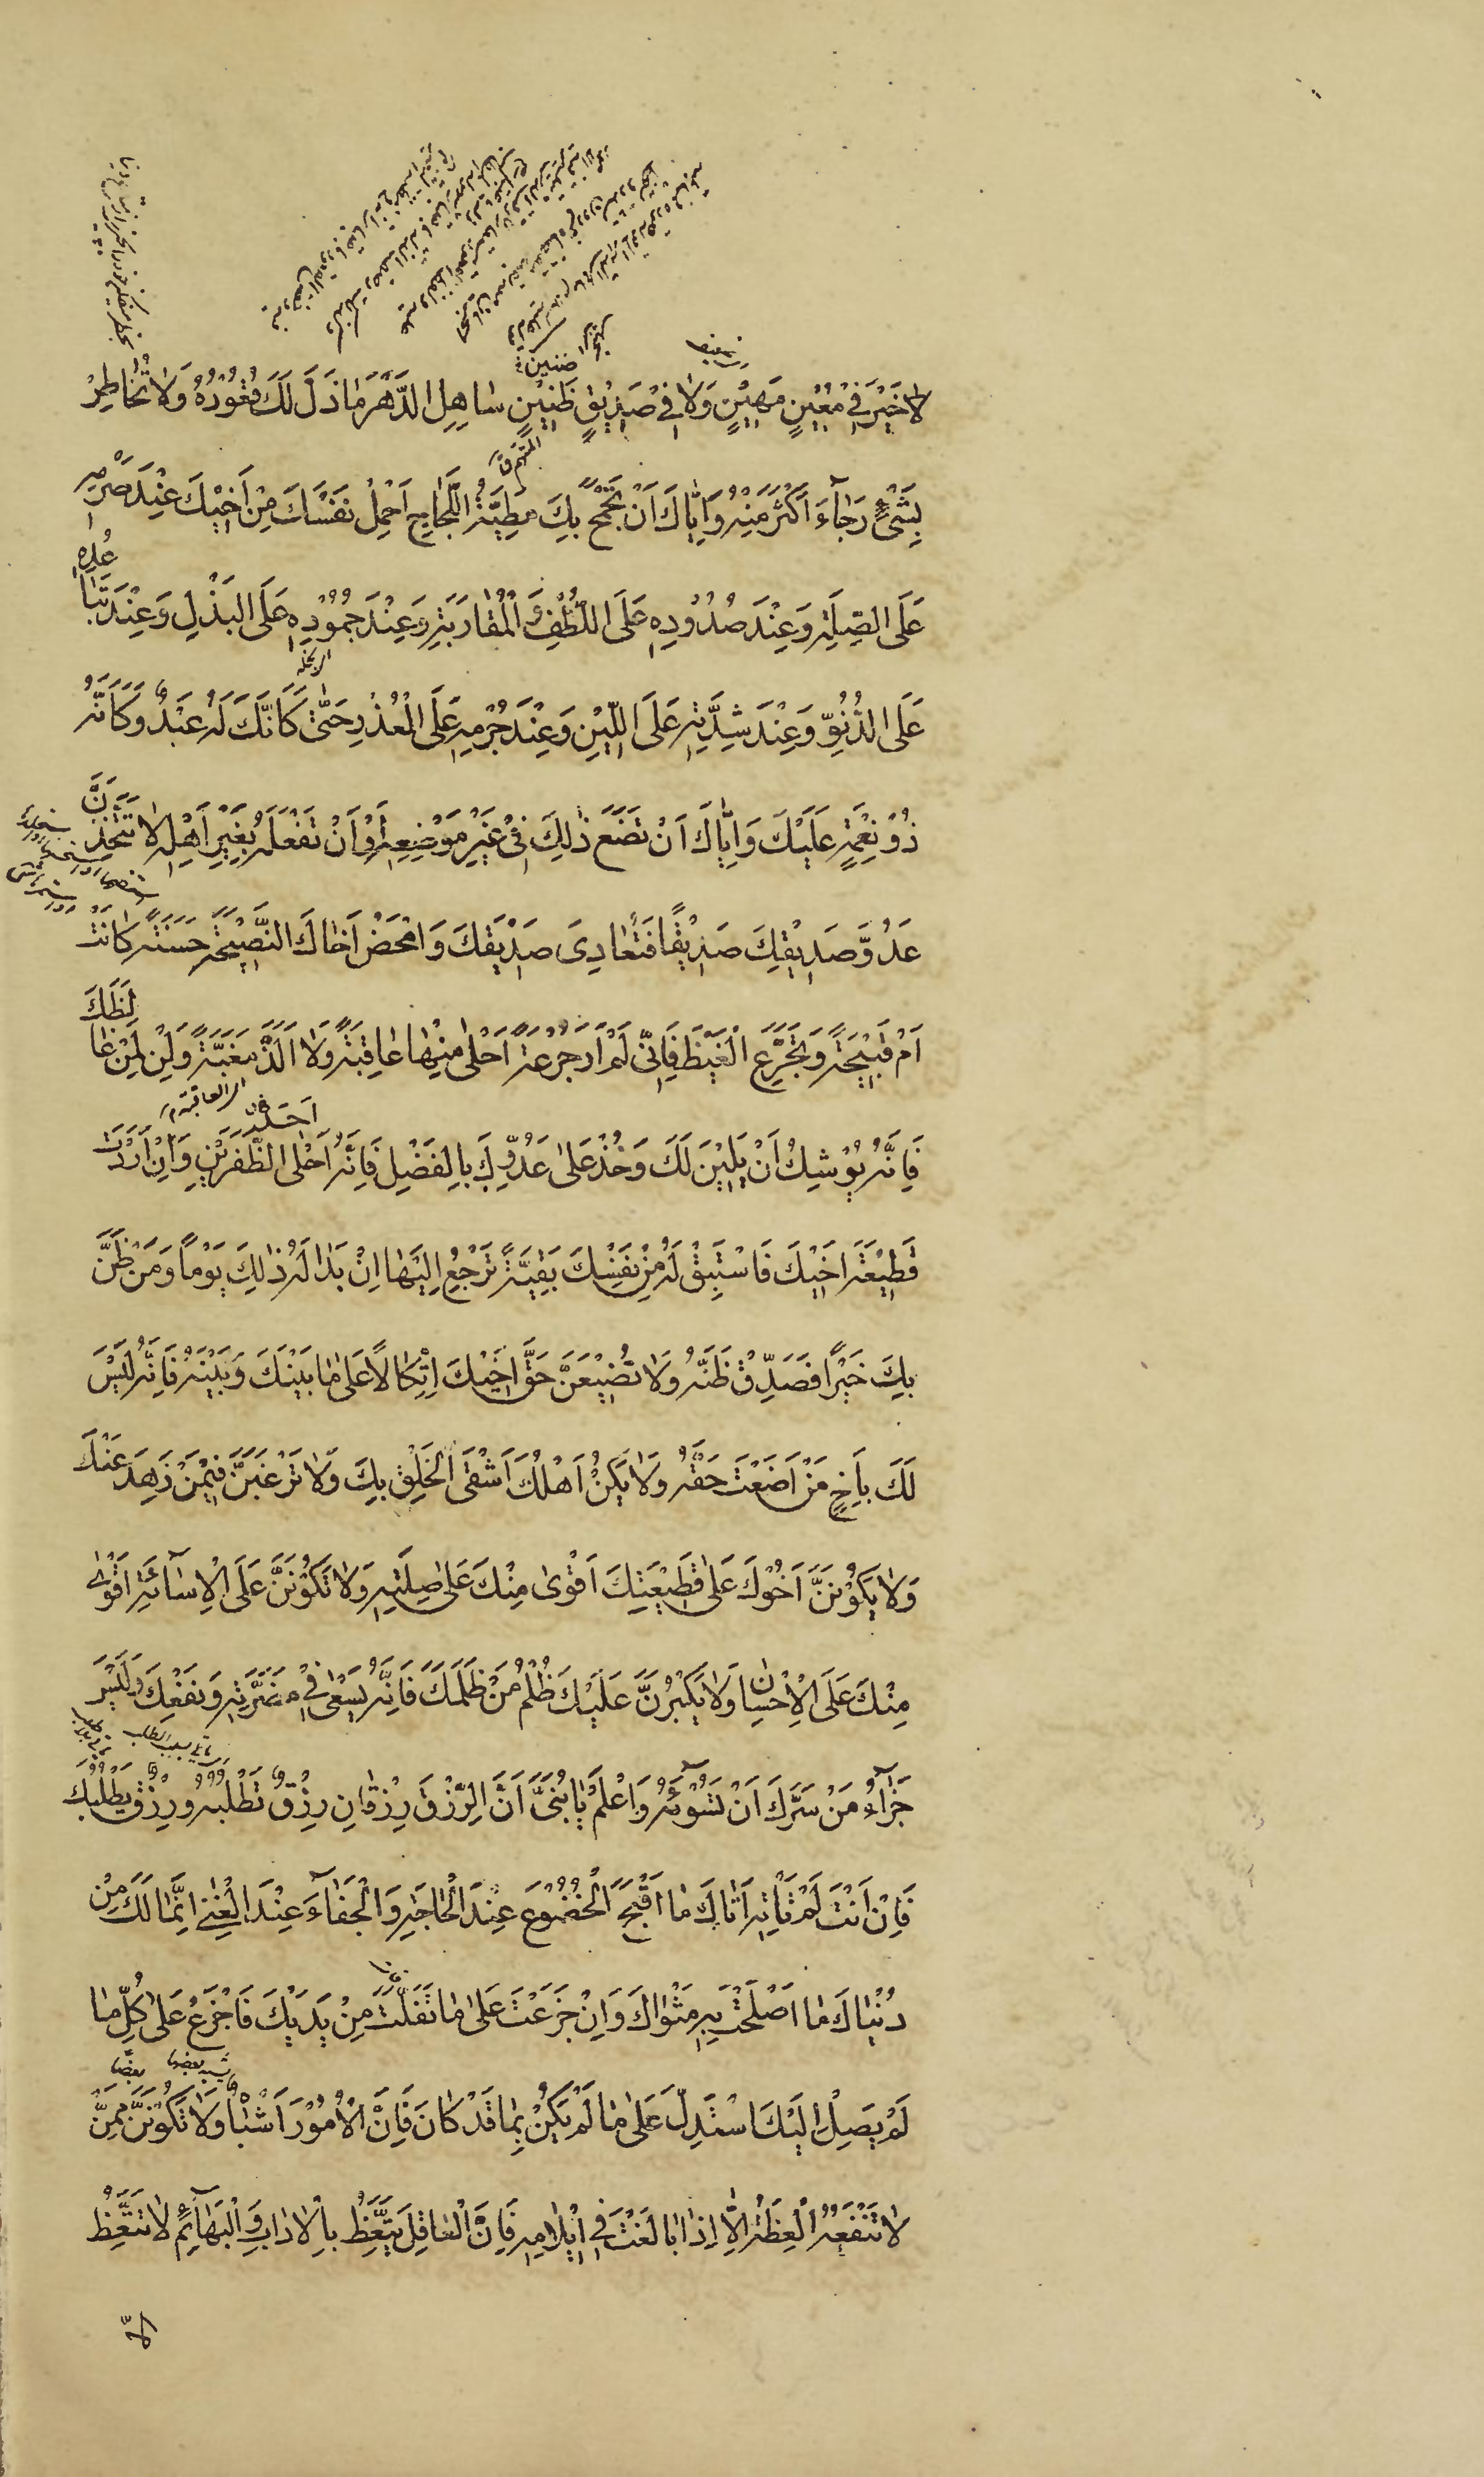 ضعيف
ضنين
لَا خَيْرَ فِيْ مُعِيْنٍ مَهِيْنٍ وَلَا فِيْ صَدِيْقٍ ظَنِيْنٍ سَاهِلِ الدَّهْرَ مَا ذَلَّ لَكَ قُعُوْدُهُ وَلَا تُخَاطِرْ
المتهم
بِشَيْءٍ رَجَاءَ أَكْثَرَ مِنْهُ وَإِيَّاكَ أَنْ تَجْمَحَ بِكَ مَطِيَّةُ اللَّجَاجِ احْمِلْ نَفْسَكَ مِنْ أَخِيْكَ عِنْدَ صَرْمِهِ
عَلَى الصِّلَةِ وَعِنْدَ صُدُوْدِهِ عَلَى اللُّطْفِ وَالْمُقَارَبَةِ وَعِنْدَ جُمُوْدِهِ عَلَى الْبَذْلِ وَعِنْدَ تَبَاعُدِهِ
عَلَى الدُّنُوِّ وَعِنْدَ شِدَّتِهِ عَلَى اللِّيْنِ وَعِنْدَ جُرْمِهِ عَلَى الْعُذْرِ حَتَّى كَأَنَّكَ لَهُ عَبْدٌ وَكَأَنَّهُ
ذُوْ نِعْمَةٍ عَلَيْكَ وَإِيَّاكَ أَنْ تَضَعَ ذٰلِكَ فِيْ غَيْرِ مَوْضِعِهِ أَوْ أَنْ تَفْعَلَهُ بِغَيْرِ أَهْلِهِ لَا تَتَّخِذَنَّ
عَدُوَّ صَدِيْقِكَ صَدِيْقًا فَتُعَادِيَ صَدِيْقَكَ وَامْحَضْ أَخَاكَ النَّصِيْحَةَ حَسَنَةً كَانَتْ
أَمْ قَبِيْحَةً وَتَجَرَّعِ الْغَيْظَ فَإِنِّيْ لَمْ أَرَ جُرْعَةً أَحْلٰى مِنْهَا عَاقِبَةً وَلَا أَلَذَّ مَغَبَّةً وَلِنْ لِمَنْ غَالَظَكَ
العاقبة
أحد
فَإِنَّهُ يُوْشِكُ أَنْ يَلِيْنَ لَكَ وَخُذْ عَلٰى عَدُوِّكَ بِالْفَضْلِ فَإِنَّهُ أَحْلَى الظَّفَرَيْنِ وَإِنْ أَرَدْتَ
قَطِيْعَةَ أَخِيْكَ فَاسْتَبِقْ لَهُ مِنْ نَفْسِكَ بَقِيَّةً تَرْجِعُ إِلَيْهَا إِنْ بَدَا لَهُ ذٰلِكَ يَوْمًا وَمَنْ ظَنَّ
بِكَ خَيْرًا فَصَدِّقْ ظَنَّهُ وَلَا تُضِيْعَنَّ حَقَّ أَخِيْكَ اتِّكَالًا عَلٰى مَا بَيْنَكَ وَبَيْنَهُ فَإِنَّهُ لَيْسَ
لَكَ بِأَخٍ مَنْ أَضَعْتَ حَقَّهُ وَلَا يَكُنْ أَهْلُكَ أَشْقَى الْخَلْقِ بِكَ وَلَا تَرْغَبَنَّ فِيْمَنْ زَهِدَ عَنْكَ
وَلَا يَكُوْنَنَّ أَخُوْكَ عَلٰى قَطِيْعَتِكَ أَقْوٰى مِنْكَ عَلٰى صِلَتِهِ وَلَا تَكُوْنَنَّ عَلَى الْإِسَاءَةِ أَقْوٰى
مِنْكَ عَلَى الْإِحْسَانِ وَلَا يَكْبُرَنَّ عَلَيْكَ ظُلْمُ مَنْ ظَلَمَكَ فَإِنَّهُ يَسْعٰى فِيْ مَضَرَّتِهِ وَنَفْعِكَ وَلَيْسَ
جَزَاءُ مَنْ سَرَّكَ أَنْ تَسُوْءَهُ وَاعْلَمْ يَا بُنَيَّ أَنَّ الرِّزْقَ رِزْقَانِ رِزْقٌ تَطْلُبُهُ وَرِزْقٌ يَطْلُبُكَ
فَإِنْ أَنْتَ لَمْ تَأْتِهِ أَتَاكَ مَا أَقْبَحَ الْخُضُوْعَ عِنْدَ الْحَاجَةِ وَالْجَفَاءَ عِنْدَ الْغِنٰى إِنَّمَا لَكَ مِنْ
دُنْيَاكَ مَا أَصْلَحْتَ بِهِ مَثْوَاكَ وَإِنْ جَزِعْتَ عَلٰى مَا تَفَلَّتَ مِنْ يَدَيْكَ فَاجْزَعْ عَلٰى كُلِّ مَا
يشبه بعضها بعضا
لَمْ يَصِلْ إِلَيْكَ اسْتَدِلَّ عَلٰى مَا لَمْ يَكُنْ بِمَا قَدْ كَانَ فَإِنَّ الْأُمُوْرَ أَشْبَاهٌ وَلَا تَكُوْنَنَّ مِمَّنْ
لَا تَنْفَعُهُ الْعِظَةُ إِلَّا إِذَا بَالَغْتَ فِيْ إِيْلَامِهِ فَإِنَّ الْعَاقِلَ يَتَّعِظُ بِالْآدَابِ وَالْبَهَائِمُ لَا تَتَّعِظُ
إلّا